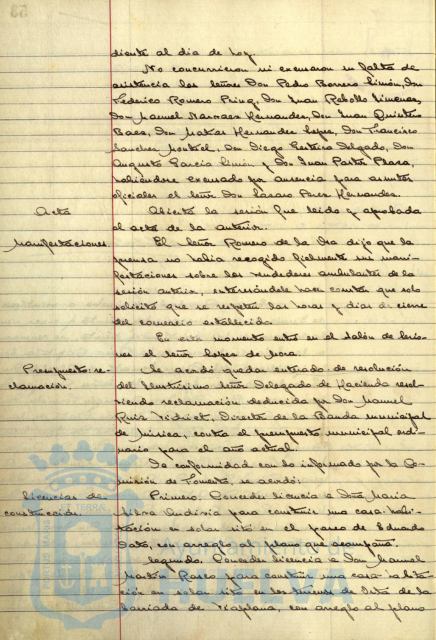 diente al día de hoy.
No concurrieron ni excusaron su falta de
asistencia los señores Don Pedro Borrero Limón, Don
Federico Romero Don Juan Rebollo Jimenez,
Don Manuel Narvaez Hernandez, Don Juan Quintero
Baez, Don Matias Hernandez Lopez, Don Francisco
Sanchez Don Diego Delgado, Don
Augusto Garcia Limón y Don Juan Pastor
habiéndose excusado por ausencia para asuntos
oficiales el señor Don Lazaro Perez Hernandez.
Acta
Abierta la sesión fue leida y aprobada
el acta de la anterior.
Manifestaciones.
El señor Romero de la Osa dijo que la
prensa no habia recogido fielmente sus mani-
festaciones sobre los vendedores ambulantes de la
sesión anterior, interesándole hacer constar que solo
solicitó que se respeten las horas y dias de cierre
del comercio establecido.
En este momento entra en el salón de sesio-
nes el señor Lopez de Mora.
Presupuesto: re-
clamación.
Se acordó quedar enterado de resolución
del Ilustrisimo señor Delegado de Hacienda resol-
viendo reclamación deducida por Don Manuel
Ruiz Director de la Banda municipal
de música, contra el presupuesto municipal ordi-
nario para el año actual.
De conformidad con lo informado por la Co-
misión de Fomento, se acordó:
Licencias de
construcción.
Primero. Conceder licencia a Doña Maria
para construir una casa-habi-
tación en solar sito en el paseo de Eduardo
Dato, con arreglo al plano que acompaña.
Segundo. Conceder licencia a Don Manuel
Martin para construir una casa-habita-
ción en solar sito en los terrenos de de la
barriada de Viaplana, con arreglo al plano